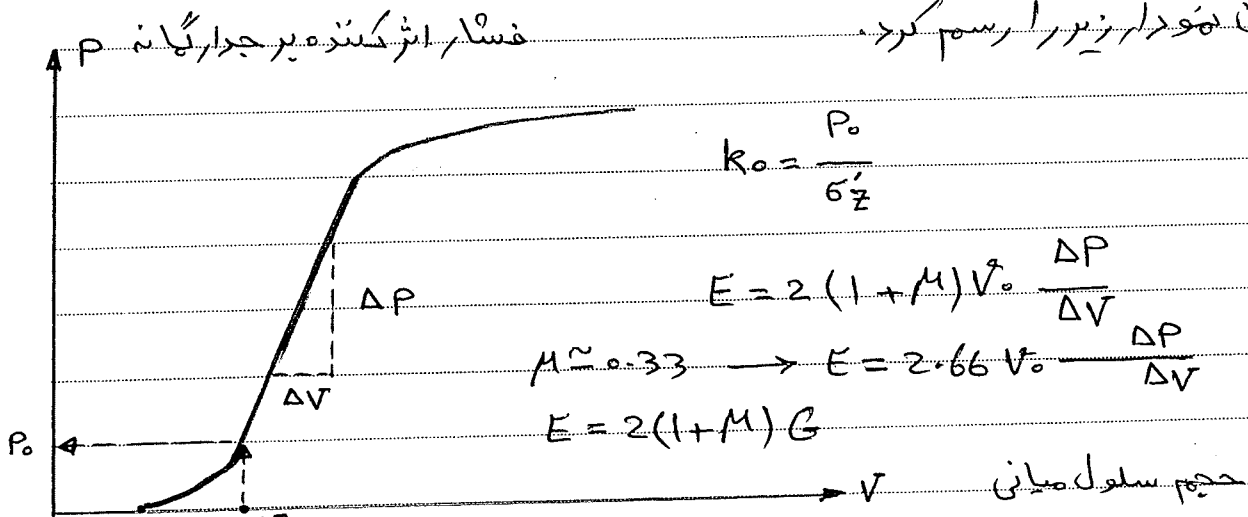 نمودار زیر را رسم کرد.
P فشار اثر کننده بر جدار گمانه
k₀ = P₀ / σ'z
E = 2 (1 + μ) V₀ ΔP / ΔV
ΔP
μ ≃ 0.33 ⟶ E = 2.66 V₀ ΔP / ΔV
ΔV
E = 2(1+μ) G
P₀
V حجم سلول میانی